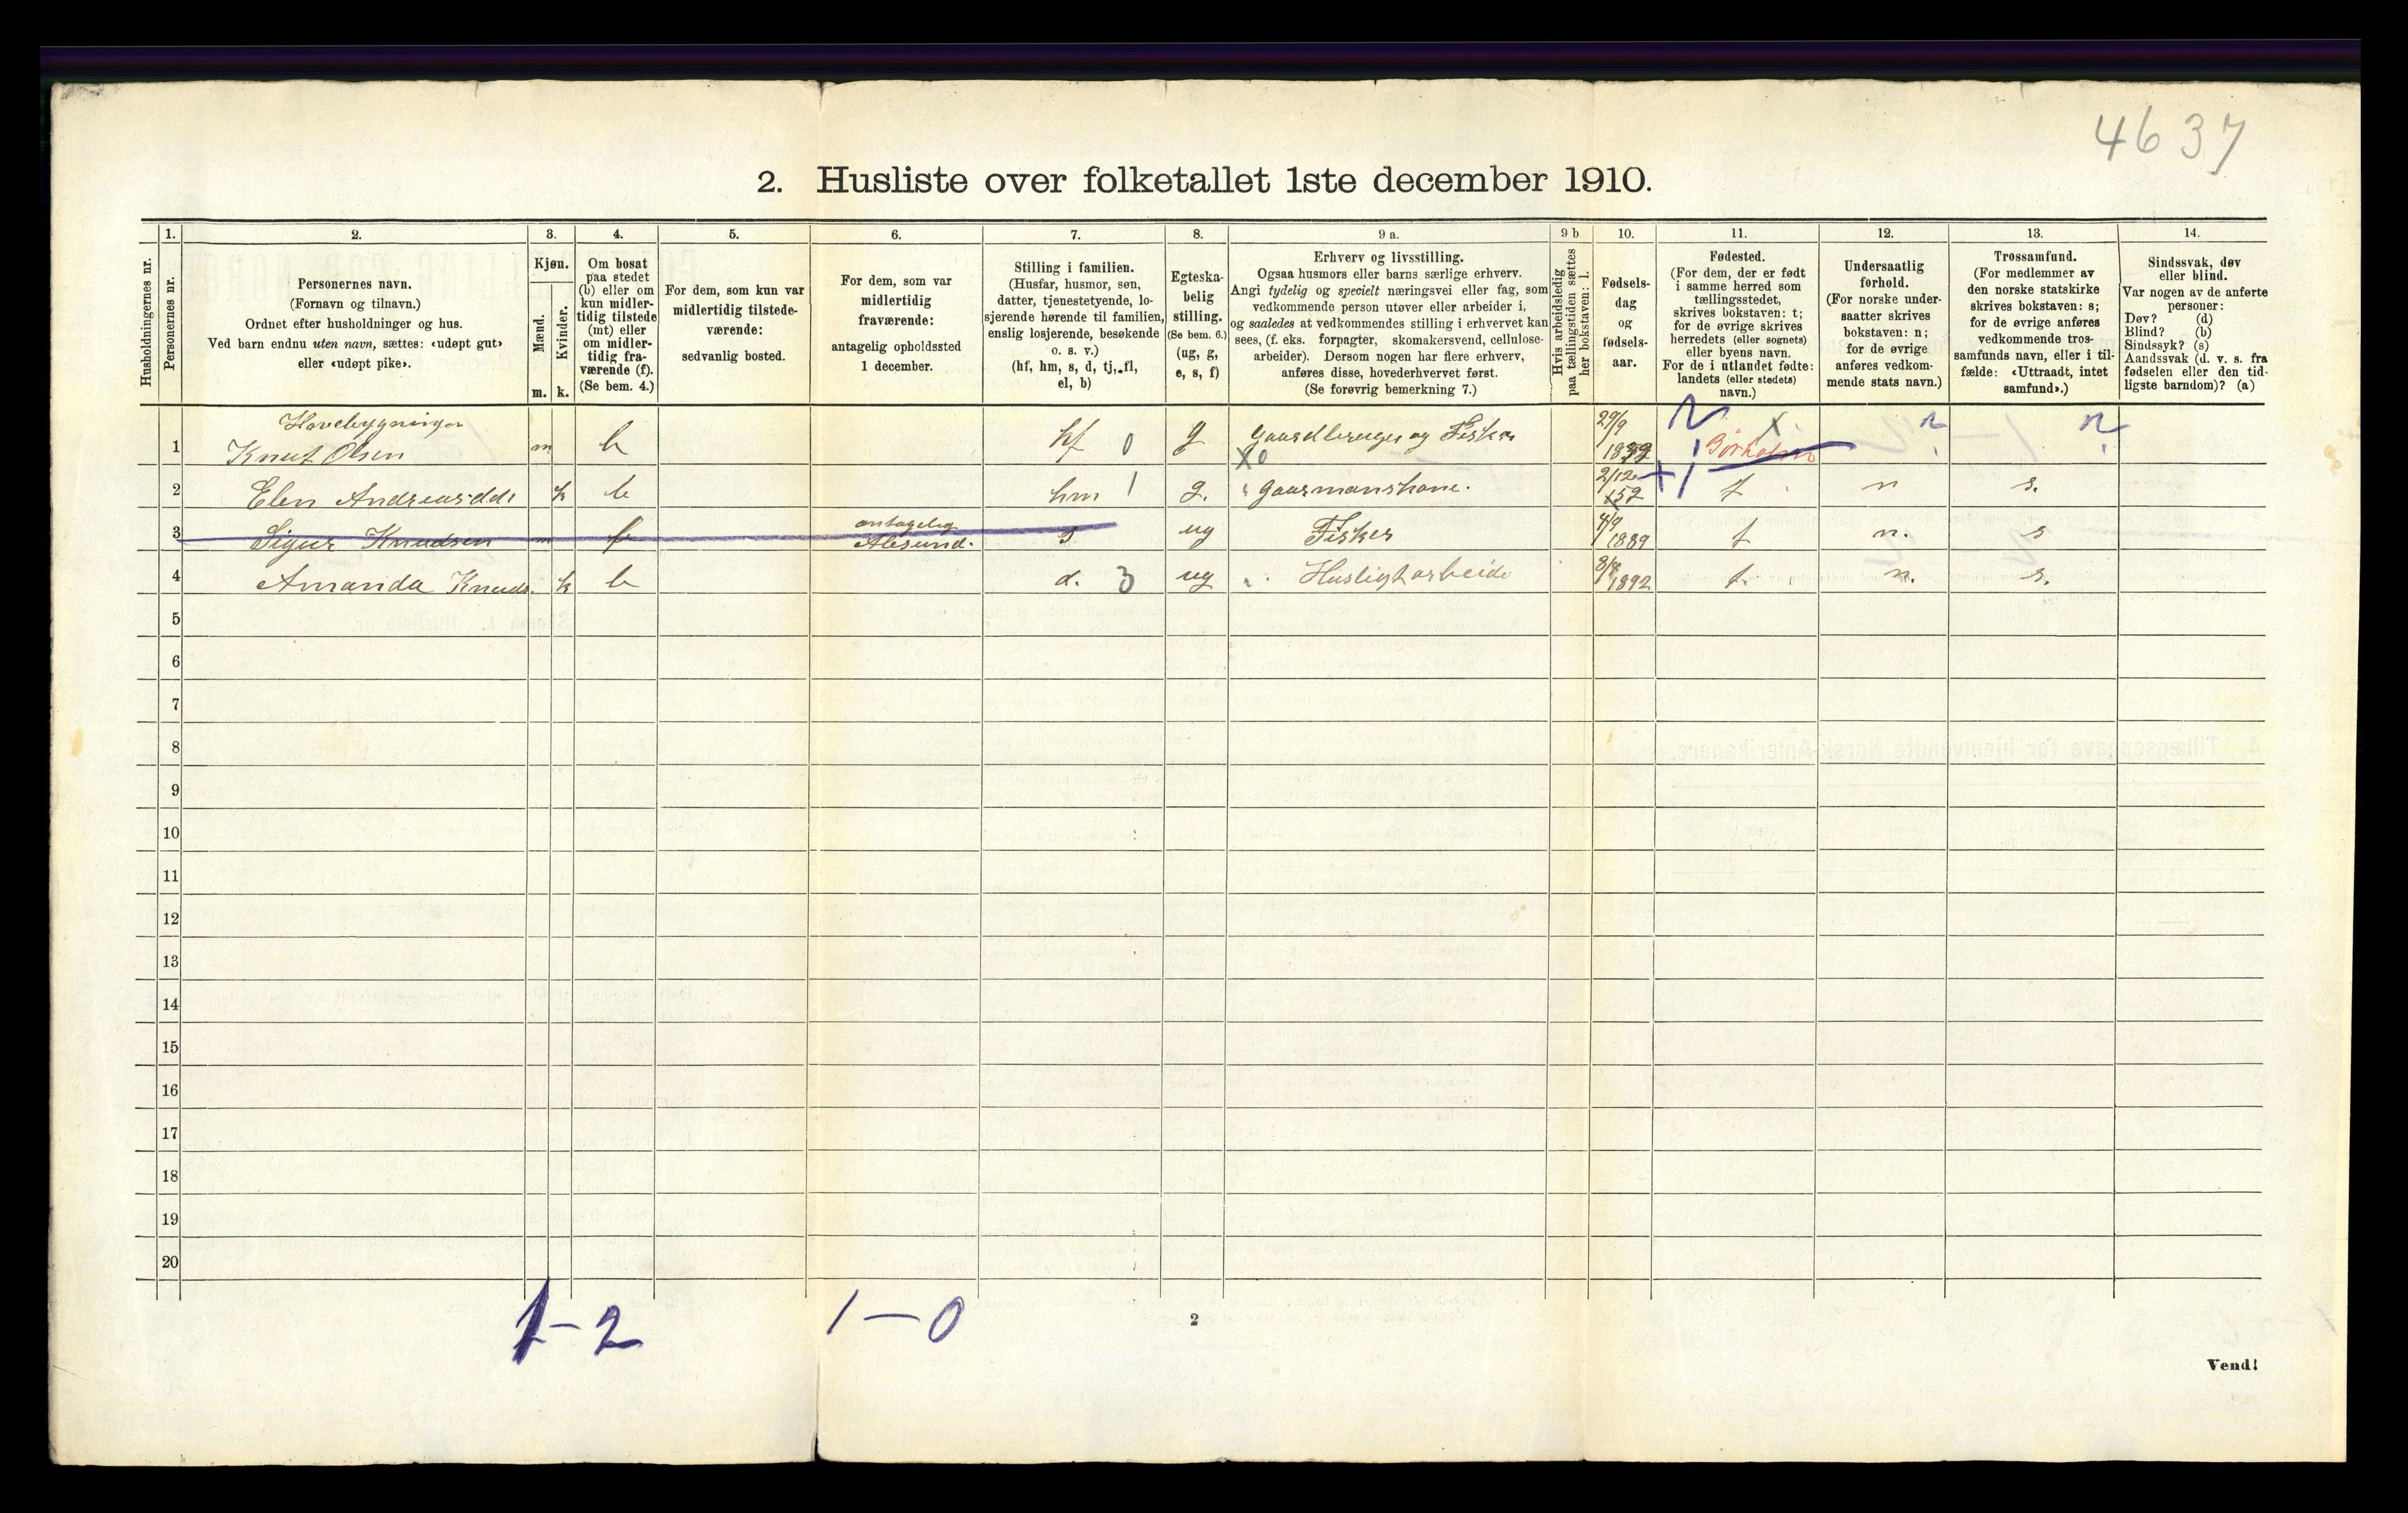 4637
2. Husliste over folketallet 1ste december 1910.
Husholdningernes nr.
1.
Personernes nr.
2.
Personernes navn.
(Fornavn og tilnavn.)
Ordnet efter husholdninger og hus.
Ved barn endnu uten navn, sættes: «udøpt gut»
eller «udøpt pike».
3.
Kjøn.
Mænd.
m.
Kvinder.
k.
4.
Om bosat
paa stedet
(b) eller om
kun midler-
tidig tilstede
(mt) eller
om midler-
tidig fra-
værende (f).
(Se bem. 4.)
5.
For dem, som kun var
midlertidig tilstede-
værende:
sedvanlig bosted.
6.
For dem, som var
midlertidig
fraværende:
antagelig opholdssted
1 december.
7.
Stilling i familien.
(Husfar, husmor, søn,
datter, tjenestetyende, lo-
sjerende hørende til familien,
enslig losjerende, besøkende
o. s. v.)
(hf, hm, s, d, tj, fl,
el, b)
8.
Egteska-
belig
stilling.
(Se bem. 6.)
(ug, g,
e, s, f)
9 a.
Erhverv og livsstilling.
Ogsaa husmors eller barns særlige erhverv.
Angi tydelig og specielt næringsvei eller fag, som
vedkommende person utøver eller arbeider i,
og saaledes at vedkommendes stilling i erhvervet kan
sees, (f. eks. forpagter, skomakersvend, cellulose-
arbeider). Dersom nogen har flere erhverv,
anføres disse, hovederhvervet først.
(Se forøvrig bemerkning 7.)
9 b
Hvis arbeidsledig
paa tællingstiden sættes
her bokstaven: l.
10.
Fødsels-
dag
og
fødsels-
aar.
11.
Fødested.
(For dem, der er født
i samme herred som
tællingsstedet,
skrives bokstaven: t;
for de øvrige skrives
herredets (eller sognets)
eller byens navn.
For de i utlandet fødte:
landets (eller stedets)
navn.)
12.
Undersaatlig
forhold.
(For norske under-
saatter skrives
bokstaven: n;
for de øvrige
anføres vedkom-
mende stats navn.)
13.
Trossamfund.
(For medlemmer av
den norske statskirke
skrives bokstaven: s;
for de øvrige anføres
vedkommende tros-
samfunds navn, eller i til-
fælde: «Uttraadt, intet
samfund».)
14.
Sindssvak, døv
eller blind.
Var nogen av de anførte
personer:
Døv? (d)
Blind? (b)
Sindssyk? (s)
Aandssvak (d. v. s. fra
fødselen eller den tid-
ligste barndom)? (a)
Hovebygningen
1 Knut Olsen m b hf 0 g Gaardbruger og Fisker 29/9 n n
X0
2 Elen Andreasddt k b hm 1 g. Gaarmanskone. 2/12 52 t n s.
3 Sigur Knudsen m f antagelig Alesund. s ug Fisker 4/9 1889 t n. s
4 Amanda Knuds. k b d. 3 ug Husligt arbeide 1892 t. n. s.
5
6
7
8
9
10
11
12
13
14
15
16
17
18
19
20
1-2 1-0
2
Vend!